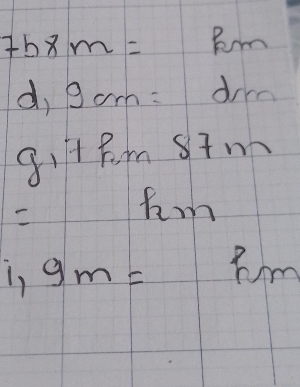 758m = km
d, 9cm = dm
g, 7km 87m
= km
i, 9m = km